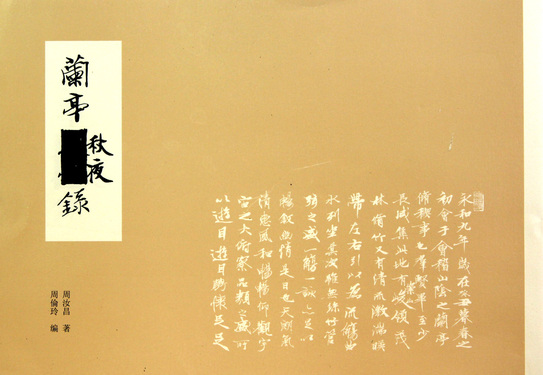 蘭亭
秋夜
錄
周汝昌 著
周倫玲 編
永和九年歲在癸丑暮春之
初會于會稽山陰之蘭亭
脩禊事也羣賢畢至少
長咸集此地有崇山峻領茂
林脩竹又有清流激湍映
帶左右引以為流觴曲
水列坐其次雖無絲竹管
之盛一觴一詠亦足以
暢敘幽情是日也天朗氣
清惠風和暢仰觀宇
宙之大俯察品類之盛所
以遊目遊目騁懷足足